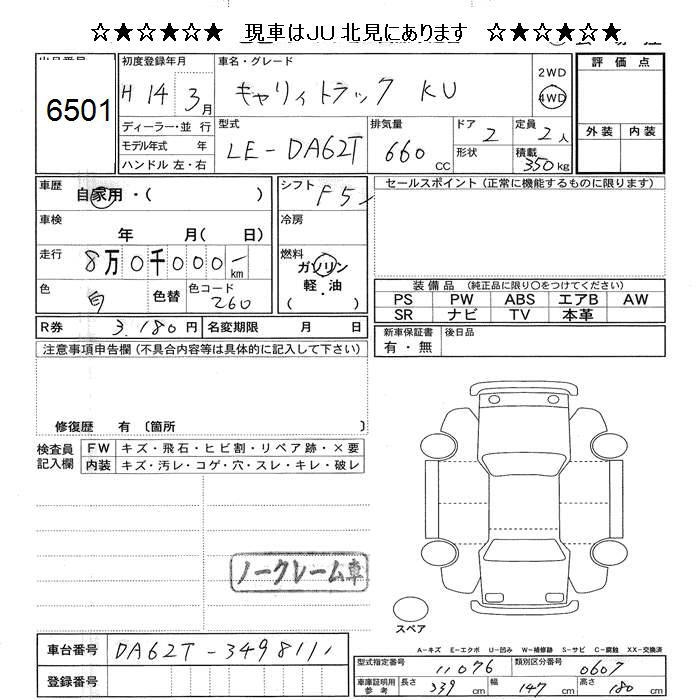 ☆★☆★☆★ 現車はJU北見にあります ☆★☆★☆★
初度登録年月 車名・グレード 評価点
H14 3月 キャリィトラック KU 2WD 4WD
6501
ディーラー・並行 型式 排気量 ドア 定員 外装 内装
モデル年式 年 LE-DA62T 660cc 2 2人
ハンドル 左・右 形状 積載 350kg
車歴 自家用・( ) シフト F5 セールスポイント (正常に機能するものに限ります)
車検 年 月( 日) 冷房
走行 8万0千000km 燃料 ガソリン 軽・油 ( )
色 白 色替 色コード 26U 装備品 (純正品に限り○をつけてください)
PS PW ABS エアB AW
SR ナビ TV 本革
R券 3,180円 名変期限 月 日 新車保証書 有・無 後日品
注意事項申告欄 (不具合内容等は具体的に記入して下さい)
修復歴 有 〔箇所 〕
検査員記入欄 FW キズ・飛石・ヒビ割・リペア跡・×要
内装 キズ・汚レ・コゲ・穴・スレ・キレ・破レ
ノークレーム車
スペア
A-キズ E-エクボ U-凹み W-補修跡 S-サビ C-腐蝕 XX-交換済
車台番号 DA62T-349811 型式指定番号 11076 類別区分番号 0607
登録番号 車庫証明用参考 長さ 339cm 幅 147cm 高さ 180cm